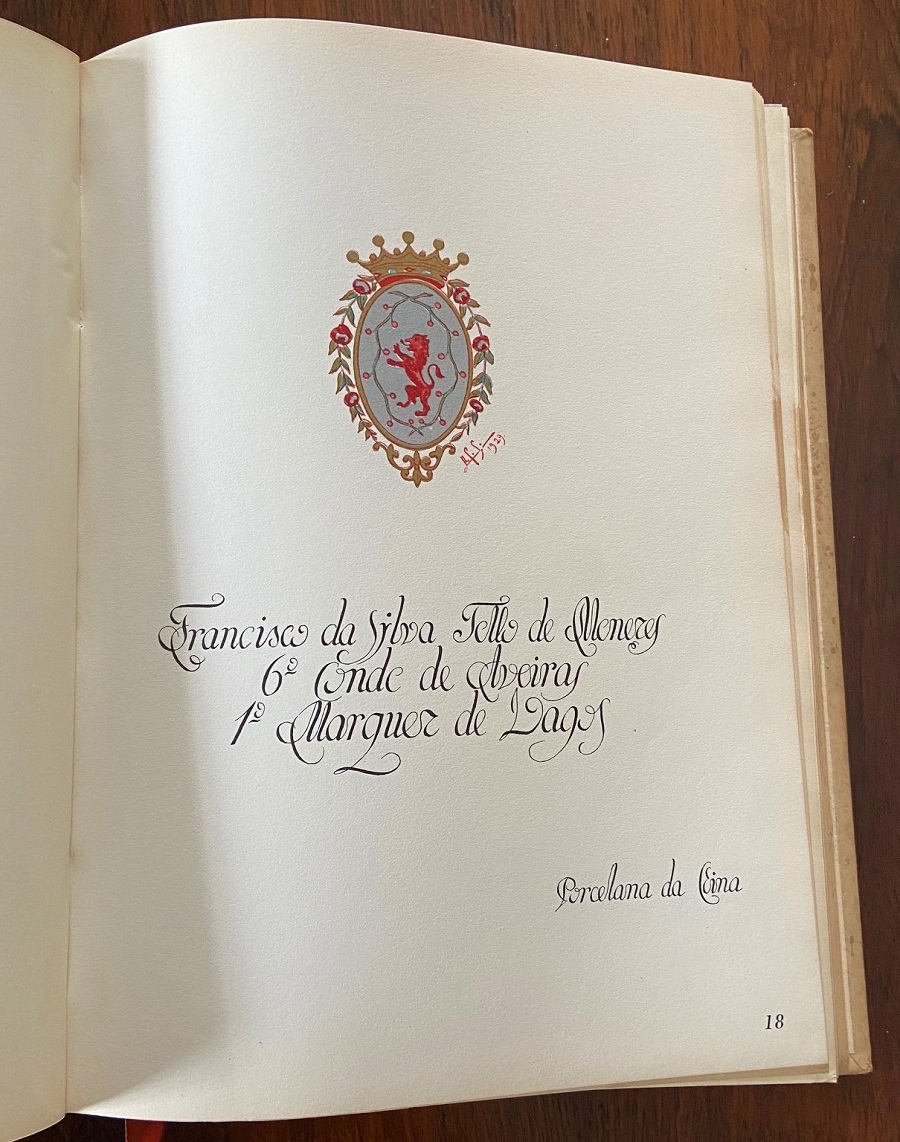 1929
Francisco da Sylva Tello de Menezes
6º Conde de Aveiras
1º Marquez de Lagos
Porcelana da China
18